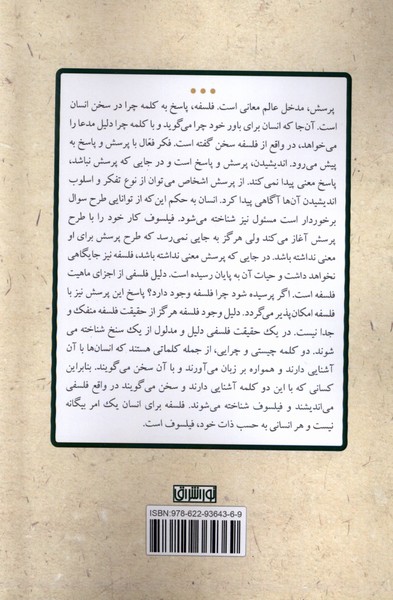 پرسش، مدخل عالم معانی است. فلسفه، پاسخ به کلمه چرا در سخن انسان
است. آن‌جا که انسان برای باور خود چرا می‌گوید و با کلمه چرا دلیل مدعا را
می‌خواهد، در واقع از فلسفه سخن گفته است. فکر فعّال با پرسش و پاسخ به
پیش می‌رود. اندیشیدن، پرسش و پاسخ است و در جایی که پرسش نباشد،
پاسخ معنی پیدا نمی‌کند. از پرسش اشخاص می‌توان از نوع تفکر و اسلوب
اندیشیدن آن‌ها آگاهی پیدا کرد. انسان به حکم این‌که از توانایی طرح سوال
برخوردار است مسئول نیز شناخته می‌شود. فیلسوف کار خود را با طرح
پرسش آغاز می‌کند ولی هرگز به جایی نمی‌رسد که طرح پرسش برای او
معنی نداشته باشد. در جایی که پرسش معنی نداشته باشد، فلسفه نیز جایگاهی
نخواهد داشت و حیات آن به پایان رسیده است. دلیل فلسفی از اجزای ماهیت
فلسفه است. اگر پرسیده شود چرا فلسفه وجود دارد؟ پاسخ این پرسش نیز با
فلسفه امکان‌پذیر می‌گردد. دلیل وجود فلسفه هرگز از حقیقت فلسفه منفک و
جدا نیست. در یک حقیقت فلسفی دلیل و مدلول از یک سنخ شناخته می
شوند. دو کلمه چیستی و چرایی، از جمله کلماتی هستند که انسان‌ها با آن
آشنایی دارند و همواره بر زبان می‌آورند و با آن سخن می‌گویند. بنابراین
کسانی که با این دو کلمه آشنایی دارند و سخن می‌گویند در واقع فلسفی
می‌اندیشند و فیلسوف شناخته می‌شوند. فلسفه برای انسان یک امر بیگانه
نیست و هر انسانی به حسب ذات خود، فیلسوف است.
نور اشراق
ISBN: 978-622-93643-6-9